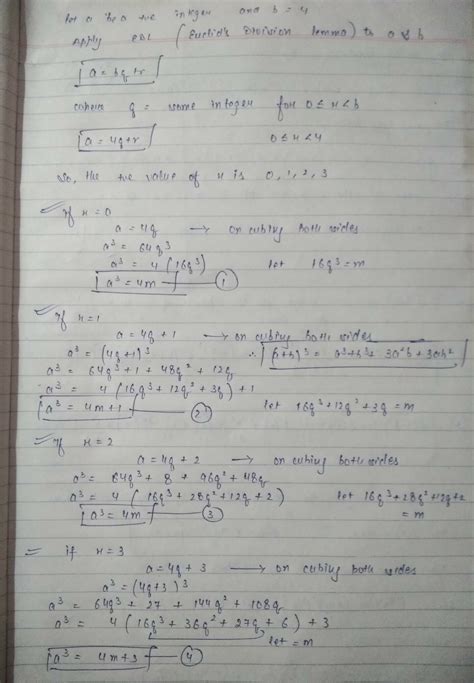 let a be a +ve integer and b = 4
Apply EDL (Euclid's Division lemma) to a & b
a = bq+r
where q = some integer for 0 ≤ r < b
a = 4q+r 0 ≤ r < 4
So, the +ve value of r is 0, 1, 2, 3
If r=0
a = 4q → on cubing both sides
a³ = 64q³
a³ = 4 (16q³) let 16q³ = m
a³ = 4m — ①
If r=1
a = 4q + 1 → on cubing both sides
a³ = (4q+1)³ ∴ (a+b)³ = a³+b³+ 3a²b + 3ab²
a³ = 64q³ + 1 + 48q² + 12q
a³ = 4 (16q³ + 12q² + 3q) + 1
a³ = 4m+1 — ② let 16q³+12q²+3q = m
If r=2
a = 4q + 2 → on cubing both sides
a³ = 64q³ + 8 + 96q² + 48q
a³ = 4 (16q³ + 28q² + 12q + 2) let 16q³+28q²+12q+2
a³ = 4m — ③ = m
= if r=3
a = 4q + 3 → on cubing both sides
a³ = (4q+3)³
a³ = 64q³ + 27 + 144q² + 108q
a³ = 4 (16q³ + 36q² + 27q + 6) + 3
let = m
a³ = 4m+3 — ④